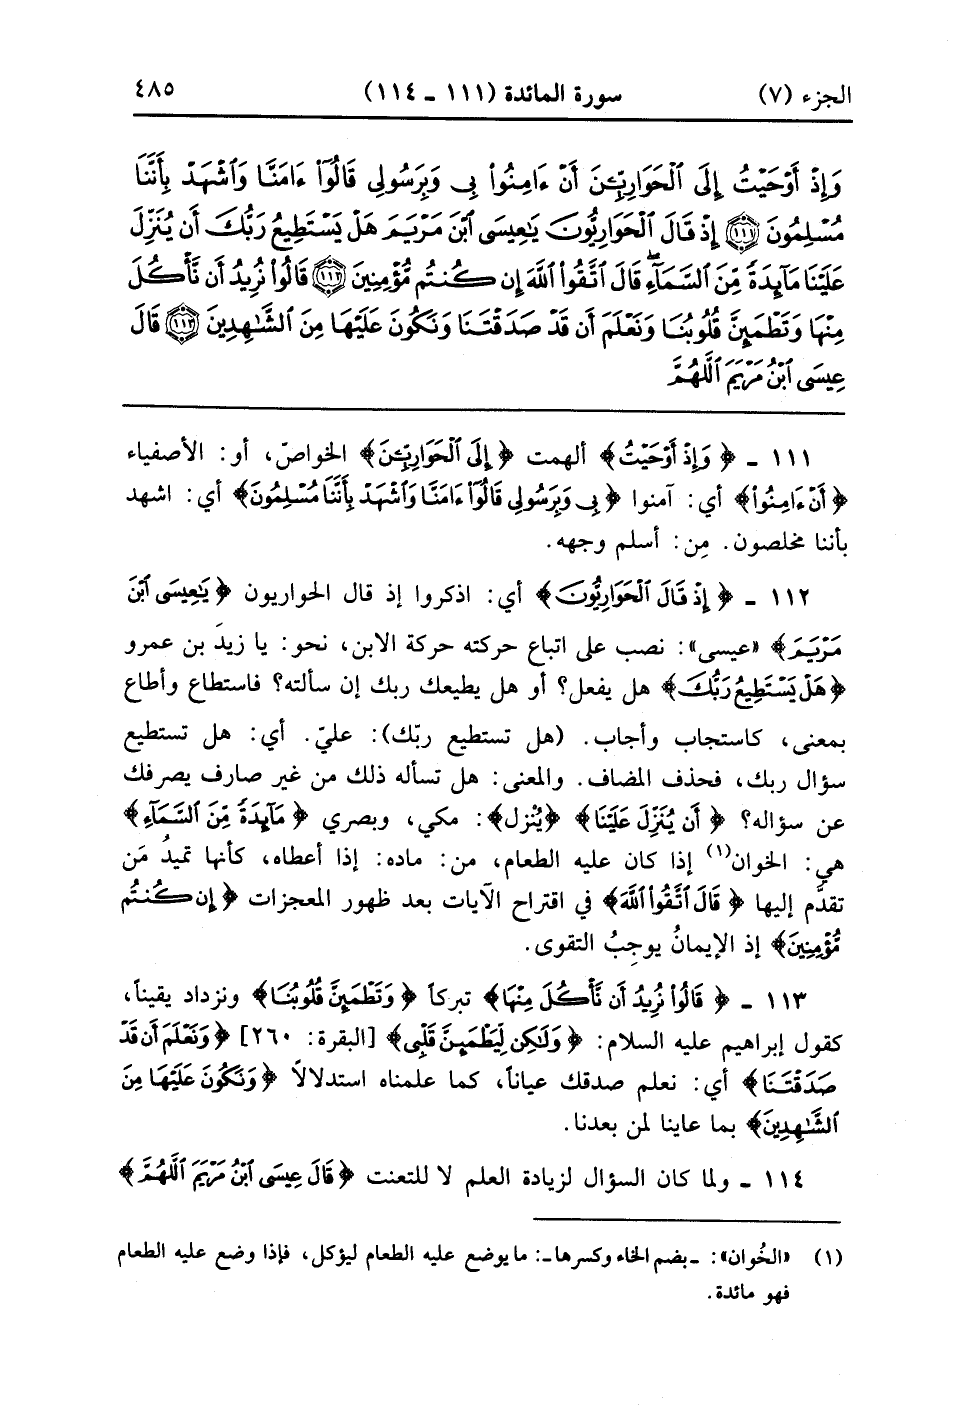 الجزء (٧) سورة المائدة (١١١ ـ ١١٤) ٤٨٥
وَإِذْ أَوْحَيْتُ إِلَى ٱلْحَوَارِيِّـۧنَ أَنْ ءَامِنُوا۟ بِى وَبِرَسُولِى قَالُوٓا۟ ءَامَنَّا وَٱشْهَدْ بِأَنَّنَا
مُسْلِمُونَ ﴿١١١﴾ إِذْ قَالَ ٱلْحَوَارِيُّونَ يَـٰعِيسَى ٱبْنَ مَرْيَمَ هَلْ يَسْتَطِيعُ رَبُّكَ أَن يُنَزِّلَ
عَلَيْنَا مَآئِدَةً مِّنَ ٱلسَّمَآءِۖ قَالَ ٱتَّقُوا۟ ٱللَّهَ إِن كُنتُم مُّؤْمِنِينَ ﴿١١٢﴾ قَالُوا۟ نُرِيدُ أَن نَّأْكُلَ
مِنْهَا وَتَطْمَئِنَّ قُلُوبُنَا وَنَعْلَمَ أَن قَدْ صَدَقْتَنَا وَنَكُونَ عَلَيْهَا مِنَ ٱلشَّـٰهِدِينَ ﴿١١٣﴾ قَالَ
عِيسَى ٱبْنُ مَرْيَمَ ٱللَّهُمَّ
١١١ ـ ﴿وَإِذْ أَوْحَيْتُ﴾ ألهمت ﴿إِلَى ٱلْحَوَارِيِّـۧنَ﴾ الخواصّ، أو: الأصفياء
﴿أَنْ ءَامِنُوا۟﴾ أي: آمنوا ﴿بِى وَبِرَسُولِى قَالُوٓا۟ ءَامَنَّا وَٱشْهَدْ بِأَنَّنَا مُسْلِمُونَ﴾ أي: اشهد
بأننا مخلصون. مِن: أسلم وجهه.
١١٢ ـ ﴿إِذْ قَالَ ٱلْحَوَارِيُّونَ﴾ أي: اذكروا إذ قال الحواريون ﴿يَـٰعِيسَى ٱبْنَ
مَرْيَمَ﴾ «عيسى»: نصب على اتباع حركته حركة الابن، نحو: يا زيدَ بن عمرو
﴿هَلْ يَسْتَطِيعُ رَبُّكَ﴾ هل يفعل؟ أو هل يطيعك ربك إن سألته؟ فاستطاع وأطاع
بمعنى، كاستجاب وأجاب. (هل تستطيع ربّك): عليّ. أي: هل تستطيع
سؤال ربك، فحذف المضاف. والمعنى: هل تسأله ذلك من غير صارف يصرفك
عن سؤاله؟ ﴿أَن يُنَزِّلَ عَلَيْنَا﴾ ﴿يُنْزل﴾: مكي، وبصري ﴿مَآئِدَةً مِّنَ ٱلسَّمَآءِ﴾
هي: الخوان(١) إذا كان عليه الطعام، من: ماده: إذا أعطاه، كأنها تميدُ مَن
تقدَّم إليها ﴿قَالَ ٱتَّقُوا۟ ٱللَّهَ﴾ في اقتراح الآيات بعد ظهور المعجزات ﴿إِن كُنتُم
مُّؤْمِنِينَ﴾ إذ الإيمانُ يوجبُ التقوى.
١١٣ ـ ﴿قَالُوا۟ نُرِيدُ أَن نَّأْكُلَ مِنْهَا﴾ تبركاً ﴿وَتَطْمَئِنَّ قُلُوبُنَا﴾ ونزداد يقيناً،
كقول إبراهيم عليه السلام: ﴿وَلَـٰكِن لِّيَطْمَئِنَّ قَلْبِى﴾ [البقرة: ٢٦٠] ﴿وَنَعْلَمَ أَن قَدْ
صَدَقْتَنَا﴾ أي: نعلم صدقك عياناً، كما علمناه استدلالاً ﴿وَنَكُونَ عَلَيْهَا مِنَ
ٱلشَّـٰهِدِينَ﴾ بما عاينا لمن بعدنا.
١١٤ ـ ولما كان السؤال لزيادة العلم لا للتعنت ﴿قَالَ عِيسَى ٱبْنُ مَرْيَمَ ٱللَّهُمَّ﴾
(١) «الخُوان»: ـ بضم الخاء وكسرها ـ: ما يوضع عليه الطعام ليؤكل، فإذا وضع عليه الطعام
فهو مائدة.